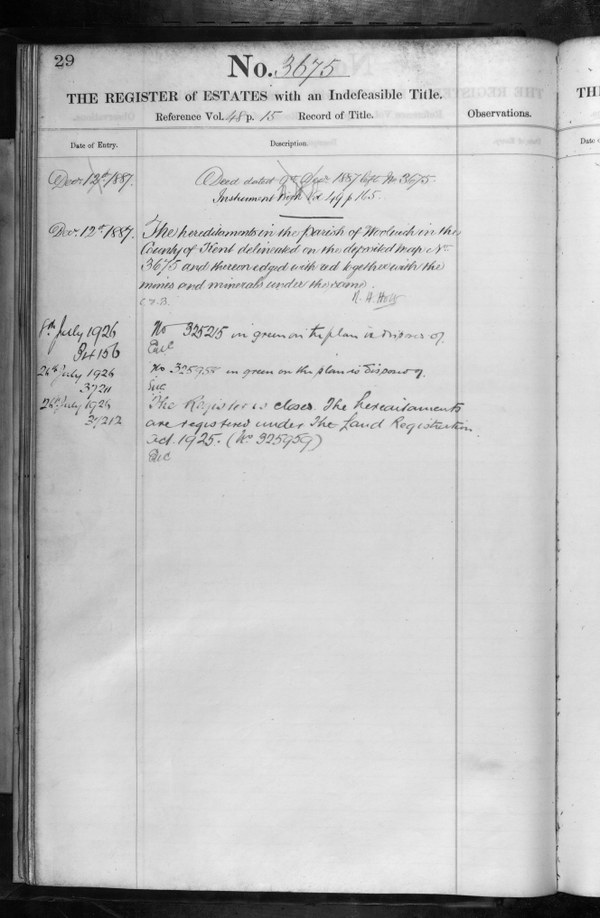 29
No. 3675
THE REGISTER of ESTATES with an Indefeasible Title.
Reference Vol. 48 p. 15 Record of Title.
Observations.
Date of Entry.
Description.
Decr. 12th 1887.
Deed dated 9th Decr. 1887 No 3675.
Instrument Vol 49 p 165.
Decr. 12th 1887.
The hereditaments in the parish of Woolwich in the
County of Kent delineated on the deposited map No.
3675 and thereon edged with red together with the
mines and minerals under the same.
8th July 1926
No 325215 in green on the plan is disposed of.
24th July 1926
No 325958 in green on the plan is disposed of.
37211
24th July 1926
The Register is closed. The hereditaments
37212
are registered under The Land Registration
Act. 1925. (No 325959)